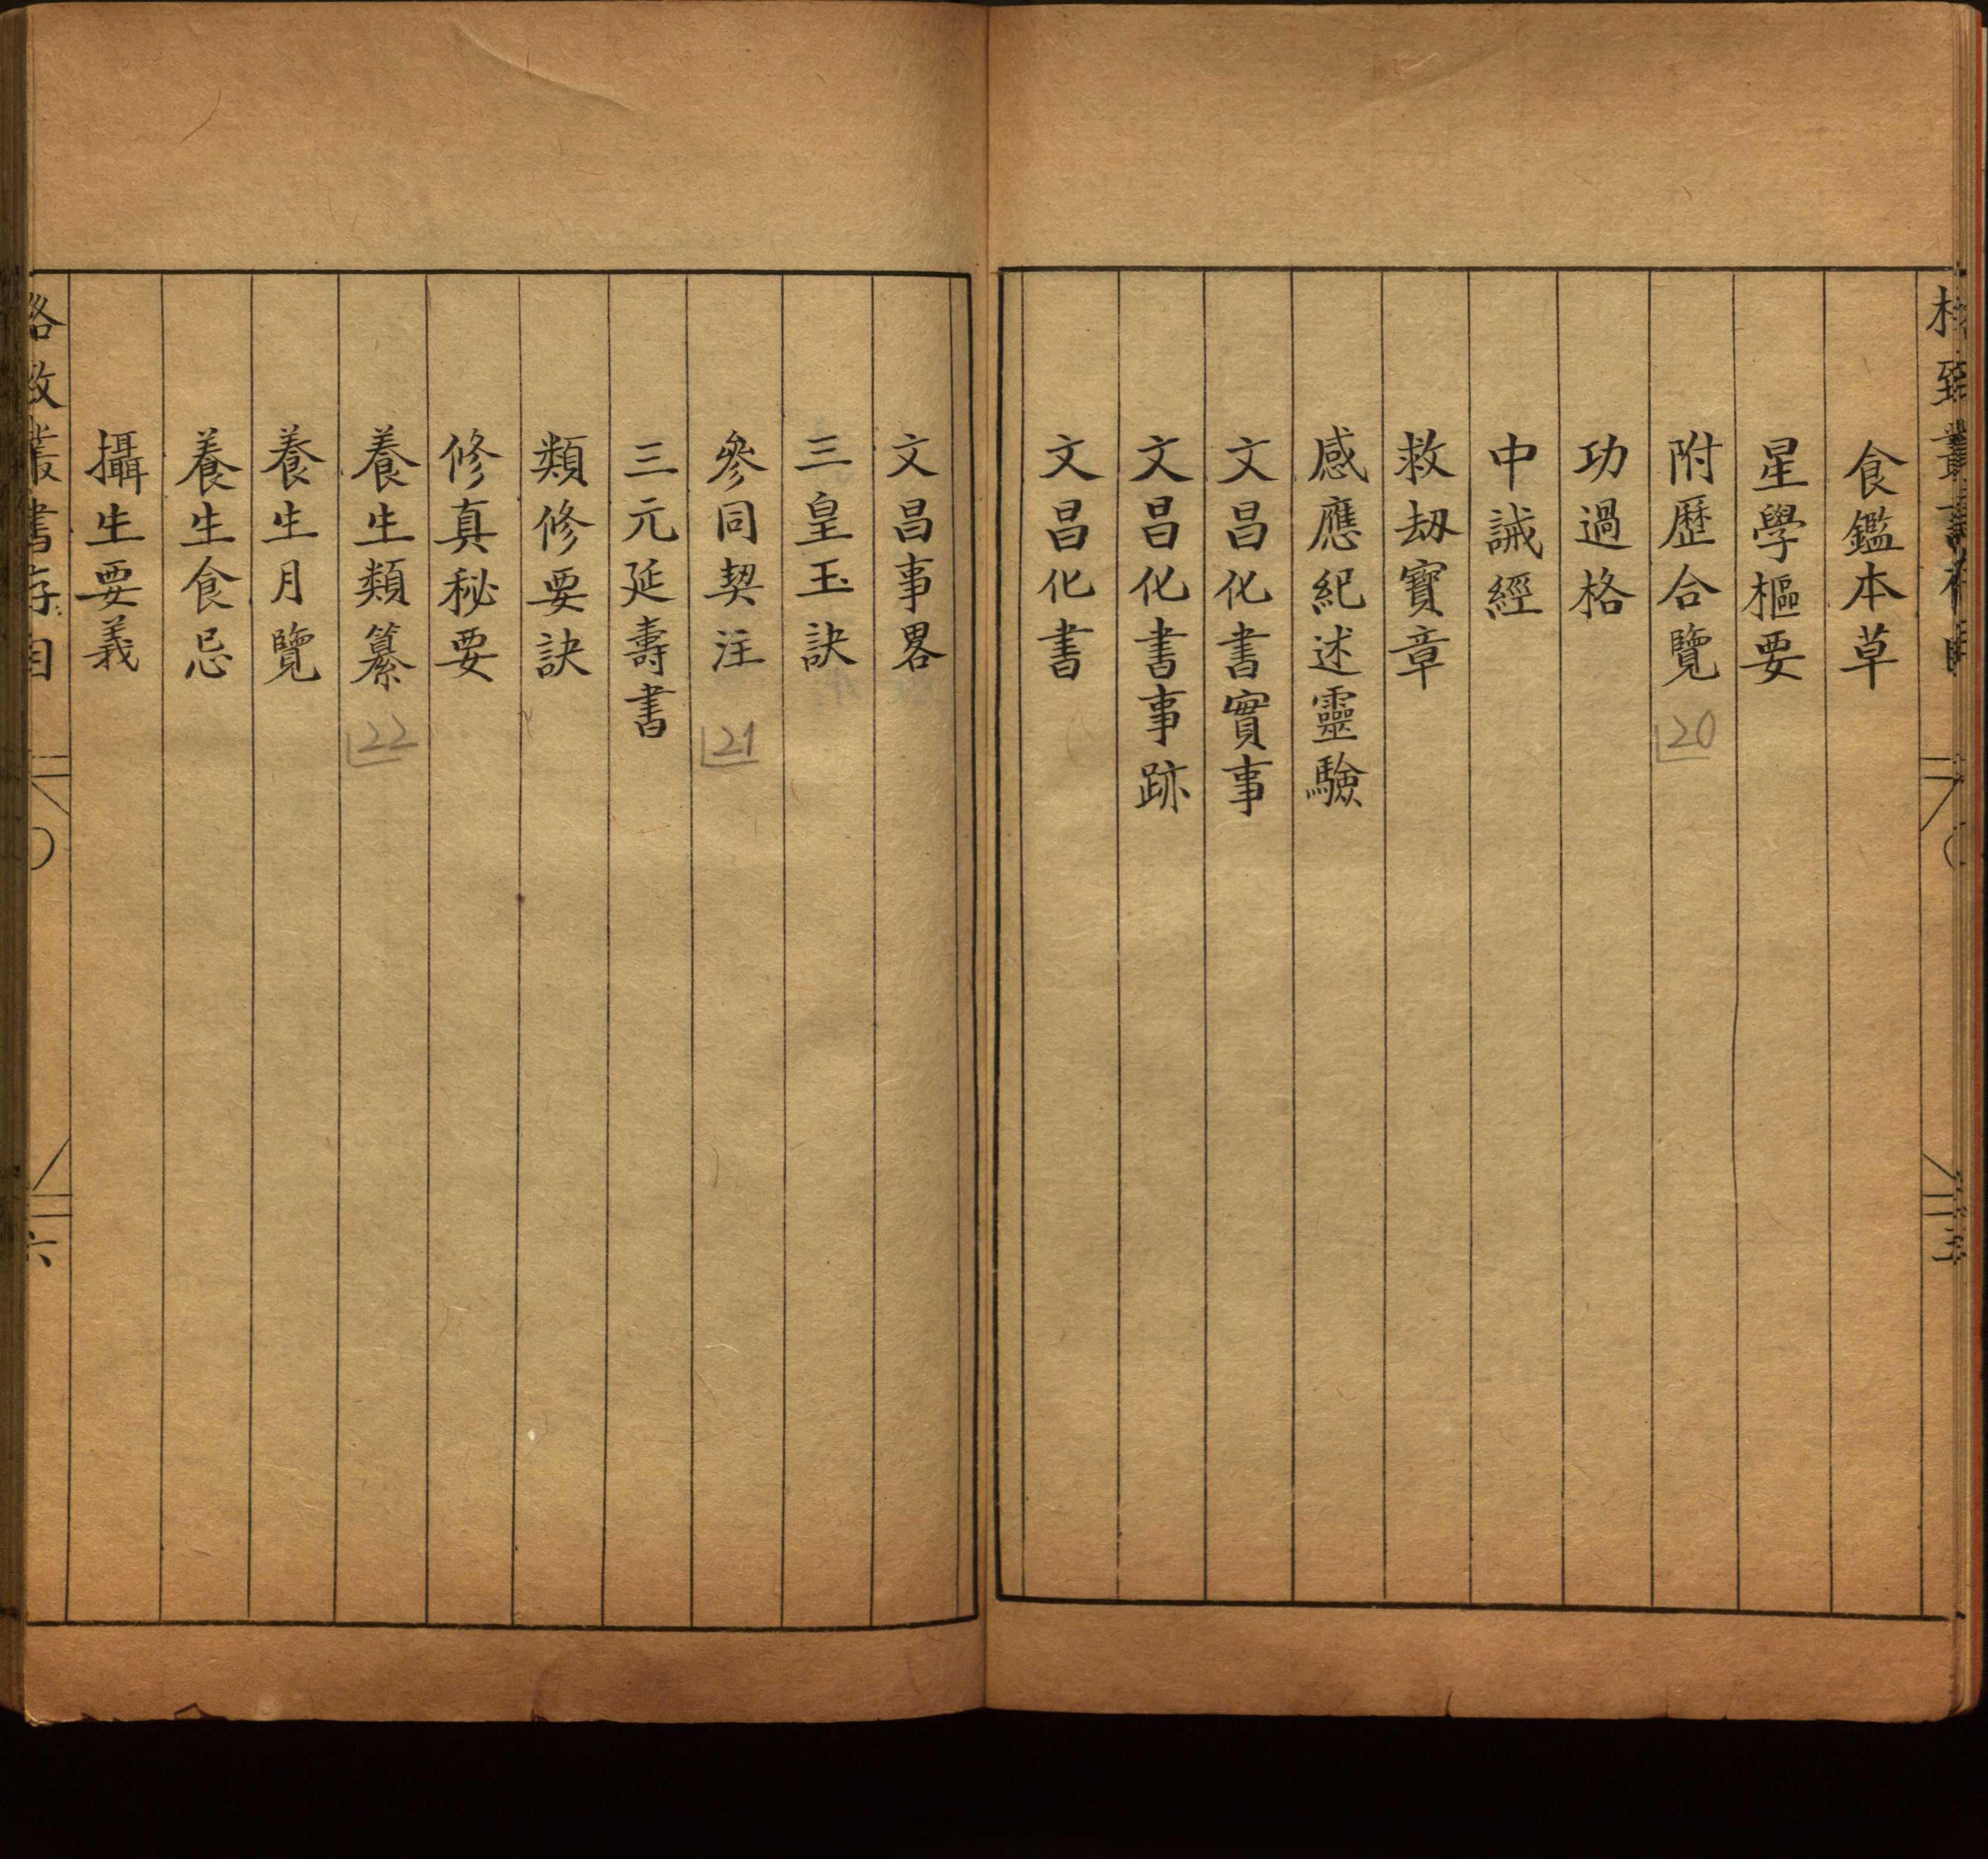 食鑑本草
星學樞要
附歷合覽
20
功過格
中誡經
救刼寶章
感應紀述靈驗
文昌化書實事
文昌化書事跡
文昌化書
文昌事畧
三皇玉訣
參同契注
21
三元延壽書
類修要訣
修真秘要
養生類纂
22
養生月覽
養生食忌
攝生要義
格致叢書存目
六